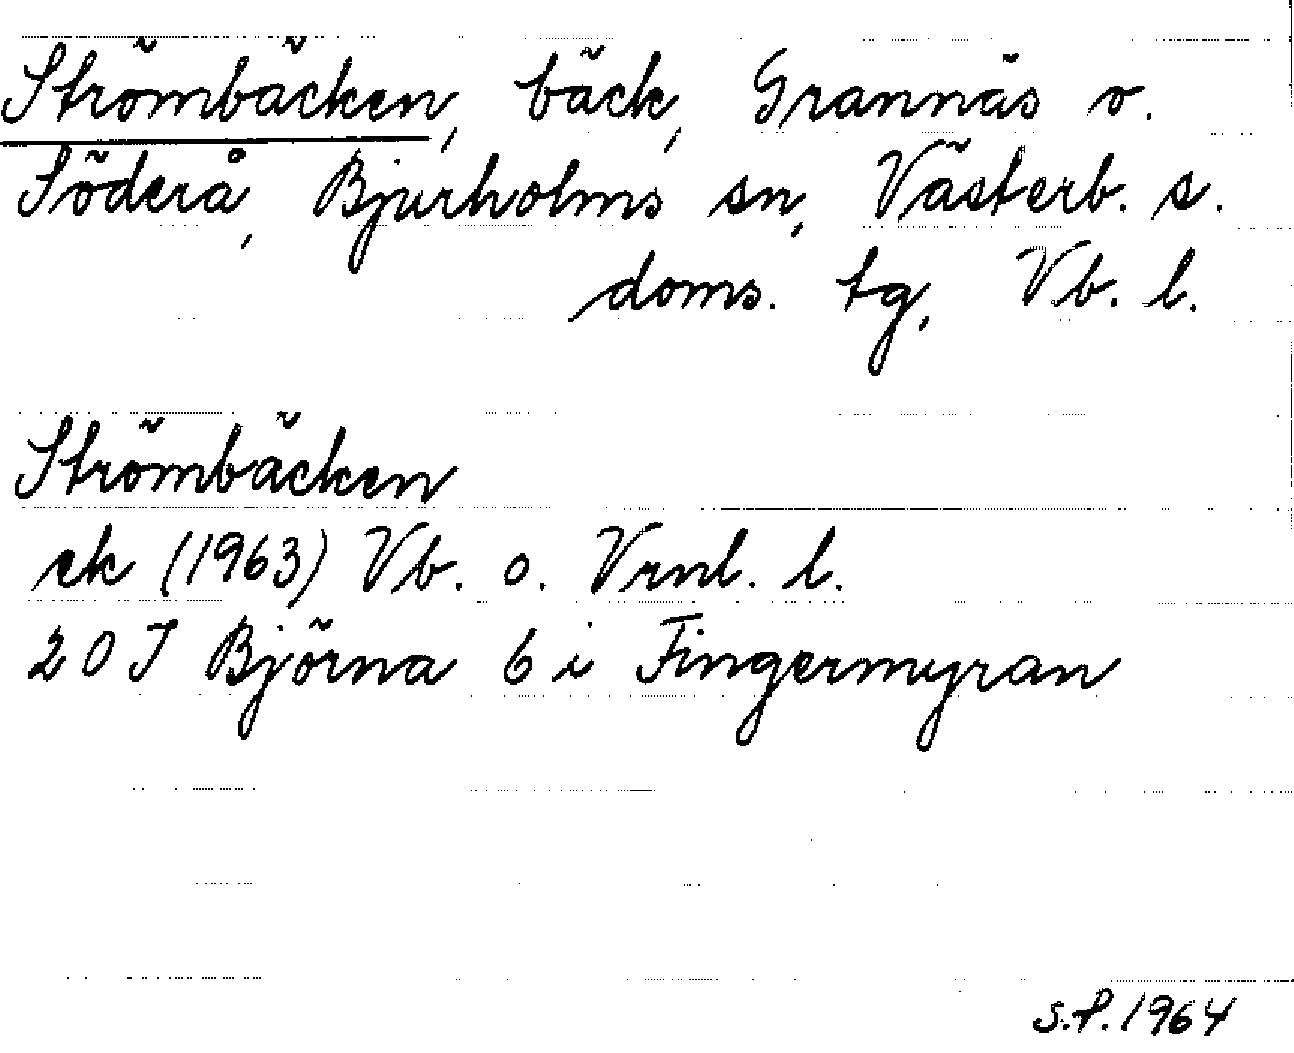 Strömbäcken, bäck, Grannäs o.
Söderå, Bjurholms sn, Västerb. s.
doms. tg, Vb. l.
Strömbäcken
ek (1963) Vb. o. Vrnl. l.
20 J Björna 6 i Fingermyran
S.P. 1964